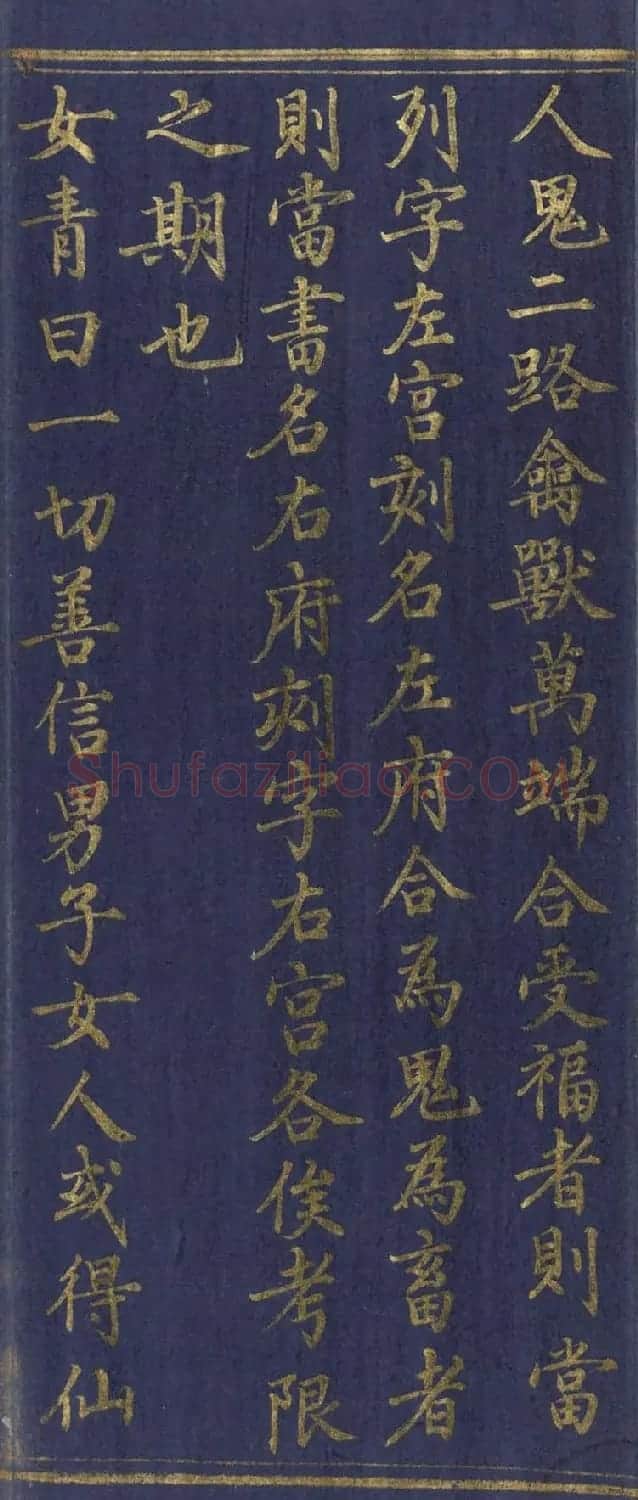 人鬼二路禽獸萬端合受福者則當
列字左宮刻名左府合為鬼為畜者
則當書名右府刻字右宮各俟考限
之期也
女青曰一切善信男子女人或得仙
Shufaziliao.COM